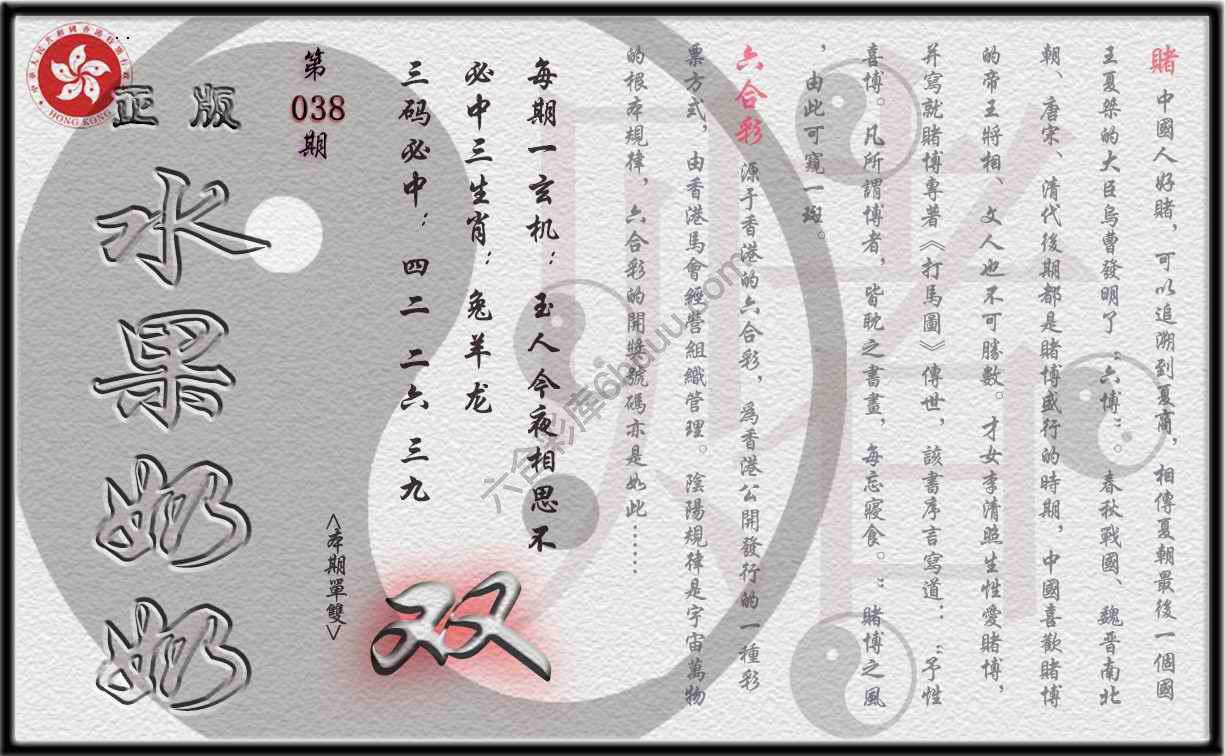 賭 中國人好賭，可以追溯到夏商，相傳夏朝最後一個國
王夏桀的大臣烏曹發明了“六博”。春秋戰國、魏晋南北
朝、唐宋、清代後期都是賭博盛行的時期，中國喜歡賭博
的帝王將相、文人也不可勝數。才女李清照生性愛賭博，
并寫就賭博專著《打馬圖》傳世，該書序言寫道：“予性
喜博。凡所謂博者，皆耽之書畫，每忘寢食。”賭博之風
，由此可窺一斑。
六合彩 源于香港的六合彩，爲香港公開發行的一種彩
票方式，由香港馬會經營組織管理。陰陽規律是宇宙萬物
的根本規律，六合彩的開獎號碼亦是如此……
每期一玄机：玉人今夜相思不
必中三生肖：兔羊龙
三码必中：四二 二六 三九
第
038
期
<本期單雙>
双
正版
水果奶奶
中華人民共和國香港特別行政區
HONG KONG
六合彩库6htuuu.com
賭